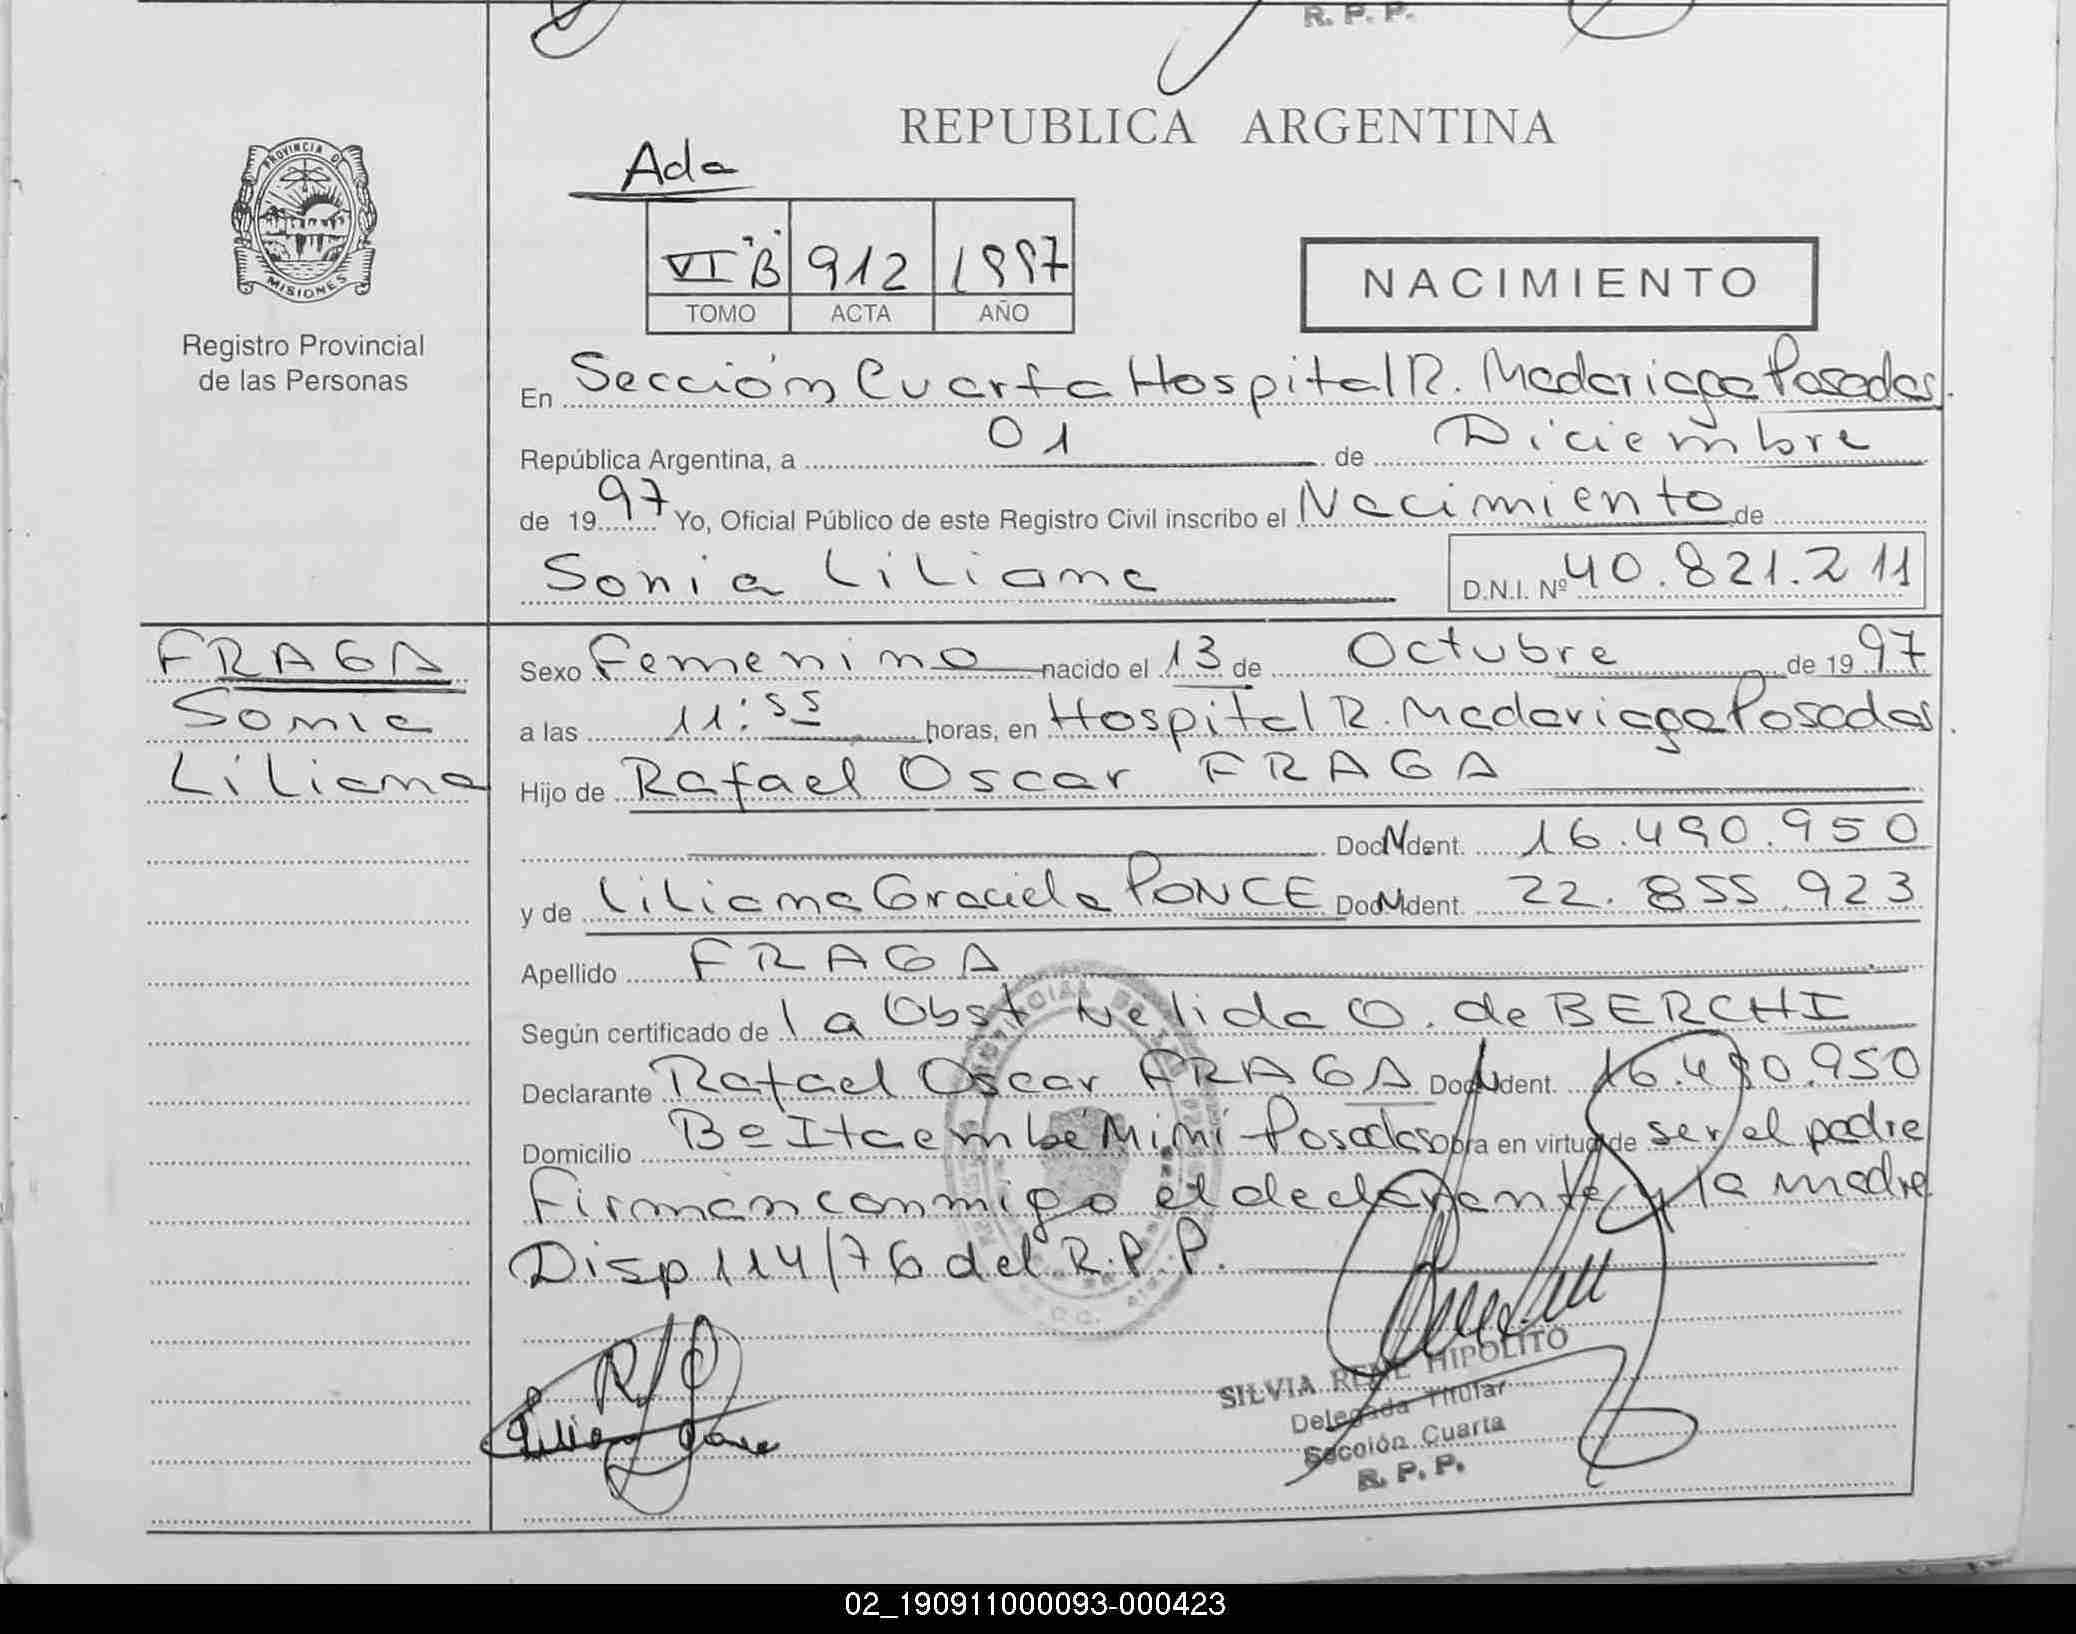 R. P. P.
REPUBLICA ARGENTINA
Ada
PROVINCIA DE
MISIONES
VI "B" 912 1997
TOMO ACTA AÑO
NACIMIENTO
Registro Provincial
de las Personas
En Sección Cuarta Hospital R. Madariaga Posadas.
República Argentina, a 01 de Diciembre
de 1997 Yo, Oficial Público de este Registro Civil inscribo el Nacimiento de
Sonia Liliana D.N.I. Nº 40.821.211
FRAGA
Sonia
Liliana
Sexo Femenino nacido el 13 de Octubre de 1997
a las 11:55 horas, en Hospital R. Madariaga Posadas.
Hijo de Rafael Oscar FRAGA
Doc. Ident. 16.490.950
y de Liliana Graciela PONCE Doc. Ident. 22.855.923
Apellido FRAGA
Según certificado de la Obst Nelida O. de BERCHI
Declarante Rafael Oscar FRAGA Doc. Ident. 16.490.950
Domicilio Bº Itaembé Miní Posadas obra en virtud de ser el padre
Firman conmigo el declarante y la madre
Disp 114/76 del R.P.P.
Liliana Ponce
SILVIA RENE HIPOLITO
Delegada Titular
Sección Cuarta
R. P. P.
02_190911000093-000423